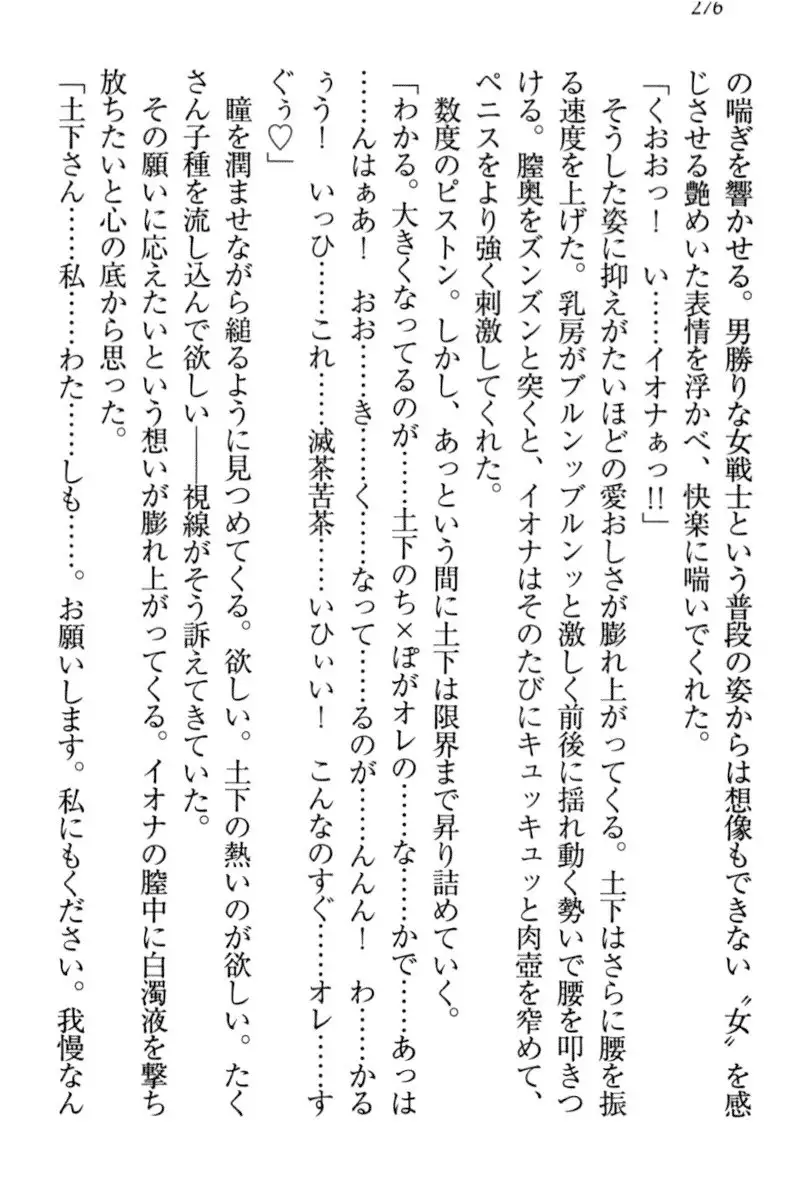 276
の喘ぎを響かせる。男勝りな女戦士という普段の姿からは想像もできない〝女〟を感
じさせる艶めいた表情を浮かべ、快楽に喘いでくれた。
「くおおっ！　い……イオナぁっ!!」
　そうした姿に抑えがたいほどの愛おしさが膨れ上がってくる。土下はさらに腰を振
る速度を上げた。乳房がブルンッブルンッと激しく前後に揺れ動く勢いで腰を叩きつ
ける。膣奥をズンズンと突くと、イオナはそのたびにキュッキュッと肉壺を窄めて、
ペニスをより強く刺激してくれた。
　数度のピストン。しかし、あっという間に土下は限界まで昇り詰めていく。
「わかる。大きくなってるのが……土下のち×ぽがオレの……な……かで……あっは
……んはぁあ！　おお……き……く……なって……るのが……んんん！　わ……かる
ぅう！　いっひ……これ……滅茶苦茶……いひぃい！　こんなのすぐ……オレ……す
ぐぅ♡」
　瞳を潤ませながら縋るように見つめてくる。欲しい。土下の熱いのが欲しい。たく
さん子種を流し込んで欲しい――視線がそう訴えてきていた。
　その願いに応えたいという想いが膨れ上がってくる。イオナの膣中に白濁液を撃ち
放ちたいと心の底から思った。
「土下さん……私……わた……しも……。お願いします。私にもください。我慢なん